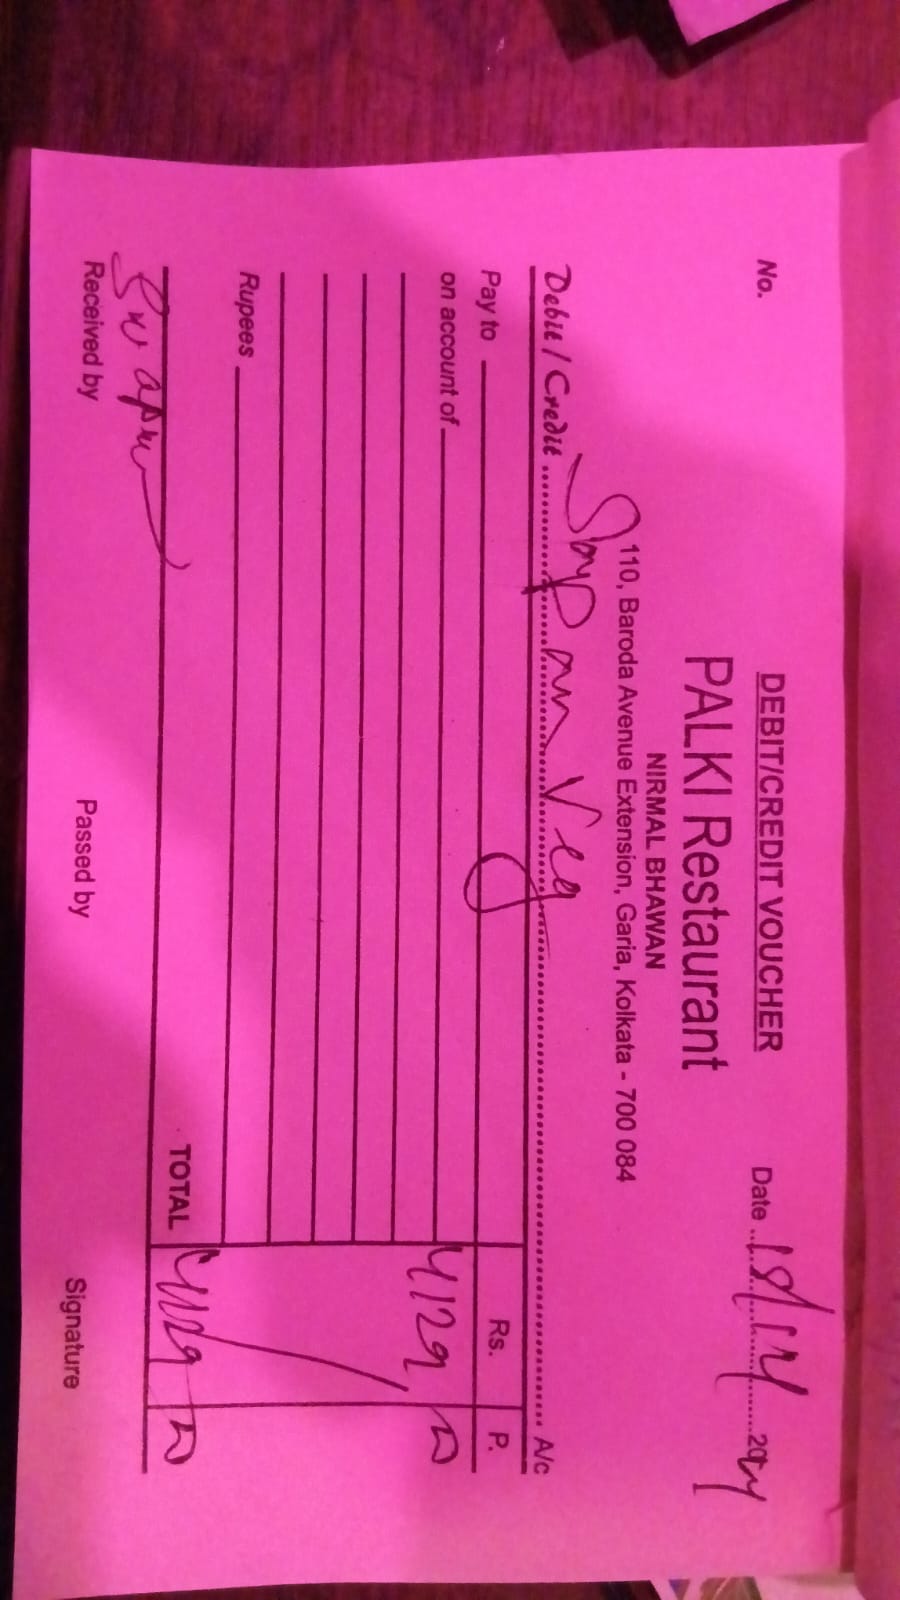 DEBIT/CREDIT VOUCHER
No.
Date
PALKI Restaurant
NIRMAL BHAWAN
110, Baroda Avenue Extension, Garia, Kolkata - 700 084
Debit / Credit Veg A/c
Pay to Rs. P.
on account of 4129
Rupees
TOTAL 4129
Swapan
Received by Passed by Signature